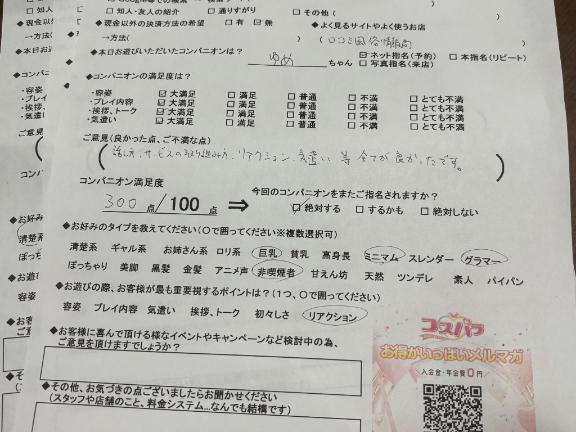 □ 知人・友人の紹介 □ 通りすがり □ その他(
◆現金以外の決済方法の希望 □ 有 ☑ 無
→方法( )
◆よく見るサイトやよく使うお店
( 口コミ風俗情報局
◆本日お遊びいただいたコンパニオンは?
ゆめ ちゃん
☑ ネット指名(予約) □ 本指名(リピート)
□ 写真指名(来店)
◆コンパニオンの満足度は?
・容姿 ☑ 大満足 □ 満足 □ 普通 □ 不満 □ とても不満
・プレイ内容 ☑ 大満足 □ 満足 □ 普通 □ 不満 □ とても不満
・挨拶、トーク ☑ 大満足 □ 満足 □ 普通 □ 不満 □ とても不満
・気遣い ☑ 大満足 □ 満足 □ 普通 □ 不満 □ とても不満
ご意見(良かった点、ご不満な点)
( 話し方、サービスの取り組み方、リアクション、気遣い 等 全てが良かったです。 )
コンパニオン満足度
300点/100点 ⇒
今回のコンパニオンをまたご指名されますか?
☑ 絶対する □ するかも □ 絶対しない
◆お好みのタイプを教えてください(〇で囲ってください※複数選択可)
清楚系 ギャル系 お姉さん系 ロリ系 巨乳 貧乳 高身長 ミニマム スレンダー グラマー
ぽっちゃり 美脚 黒髪 金髪 アニメ声 非喫煙者 甘えん坊 天然 ツンデレ 素人 パイパン
◆お遊びの際、お客様が最も重要視するポイントは?(1つ、〇で囲ってください)
容姿 プレイ内容 気遣い 挨拶、トーク 初々しさ リアクション
◆お客様に喜んで頂ける様なイベントやキャンペーンなど検討中の為、
ご意見を頂けますでしょうか?
◆その他、お気づきの点ございましたらお聞かせください
(スタッフや店舗のこと、料金システム...なんでも結構です)
コスパラ
お得がいっぱいメルマガ
入会金・年会費0円